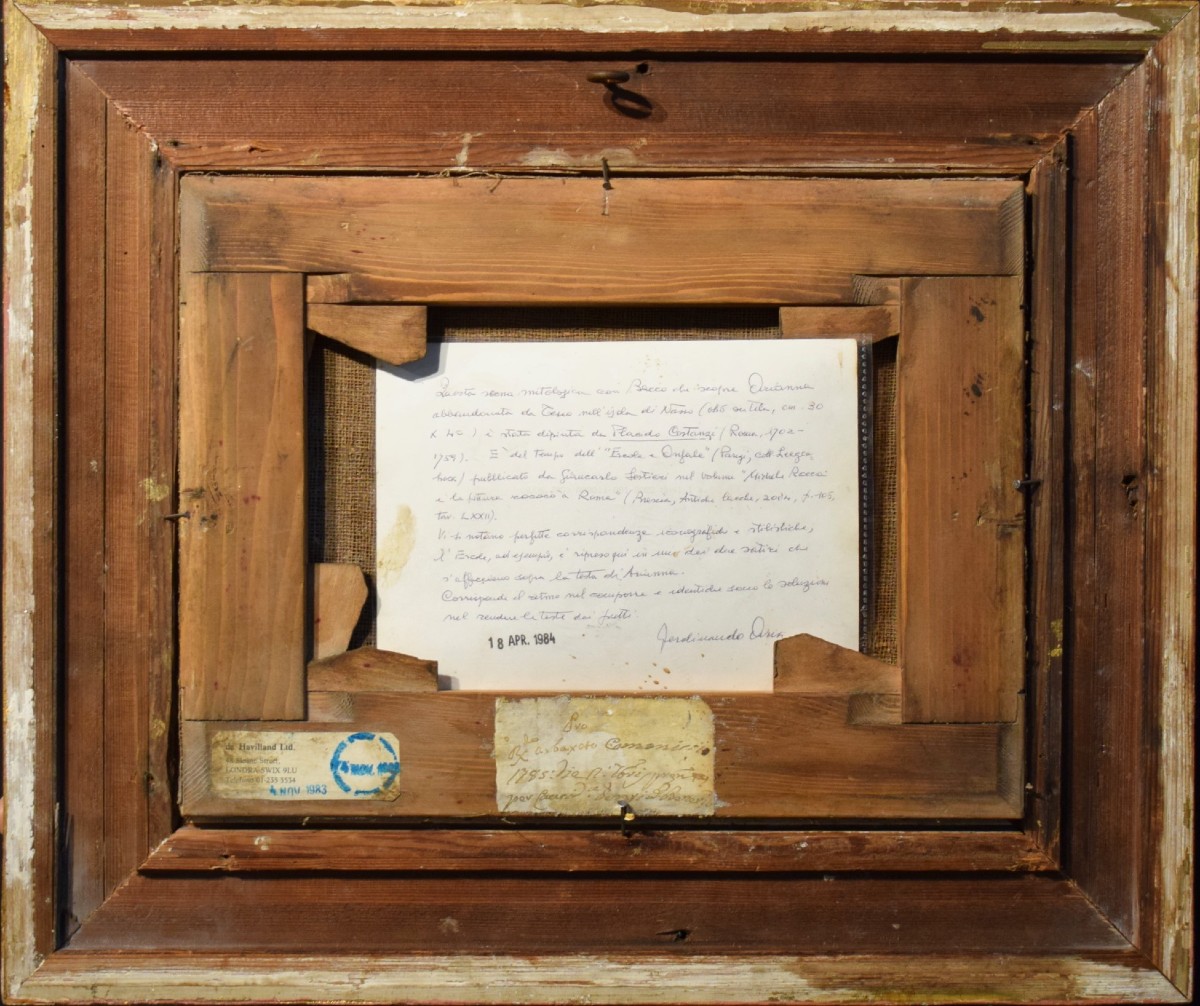 Questa scena mitologica con Bacco che scopre Arianna
abbandonata da Teseo nell'isola di Nasso (olio su tela, cm. 30
x 40) è stata dipinta da Placido Costanzi (Roma, 1702-
1759). E' del tempo dell' "Ercole e Onfale" (Parigi, coll.
pubblicato da Giancarlo Sestieri nel volume "Michele Rocca
e la pittura rococò a Roma" (Brescia,
tav. LXXII).
Vi si notano perfette corrispondenze iconografiche e stilistiche,
L'Ercole, ad esempio, è ripreso qui in uno dei due satiri che
s'affacciano sopra la testa di Arianna.
Corrisponde il ritmo nel comporre e identiche sono le soluzioni
nel rendere le teste dei putti.
18 APR. 1984
Ferdinando
de Havilland Ltd.
Street,
LONDRA SWIX 9LU
01-235 3534
4 NOV. 1983
4 NOV.
1785: Via